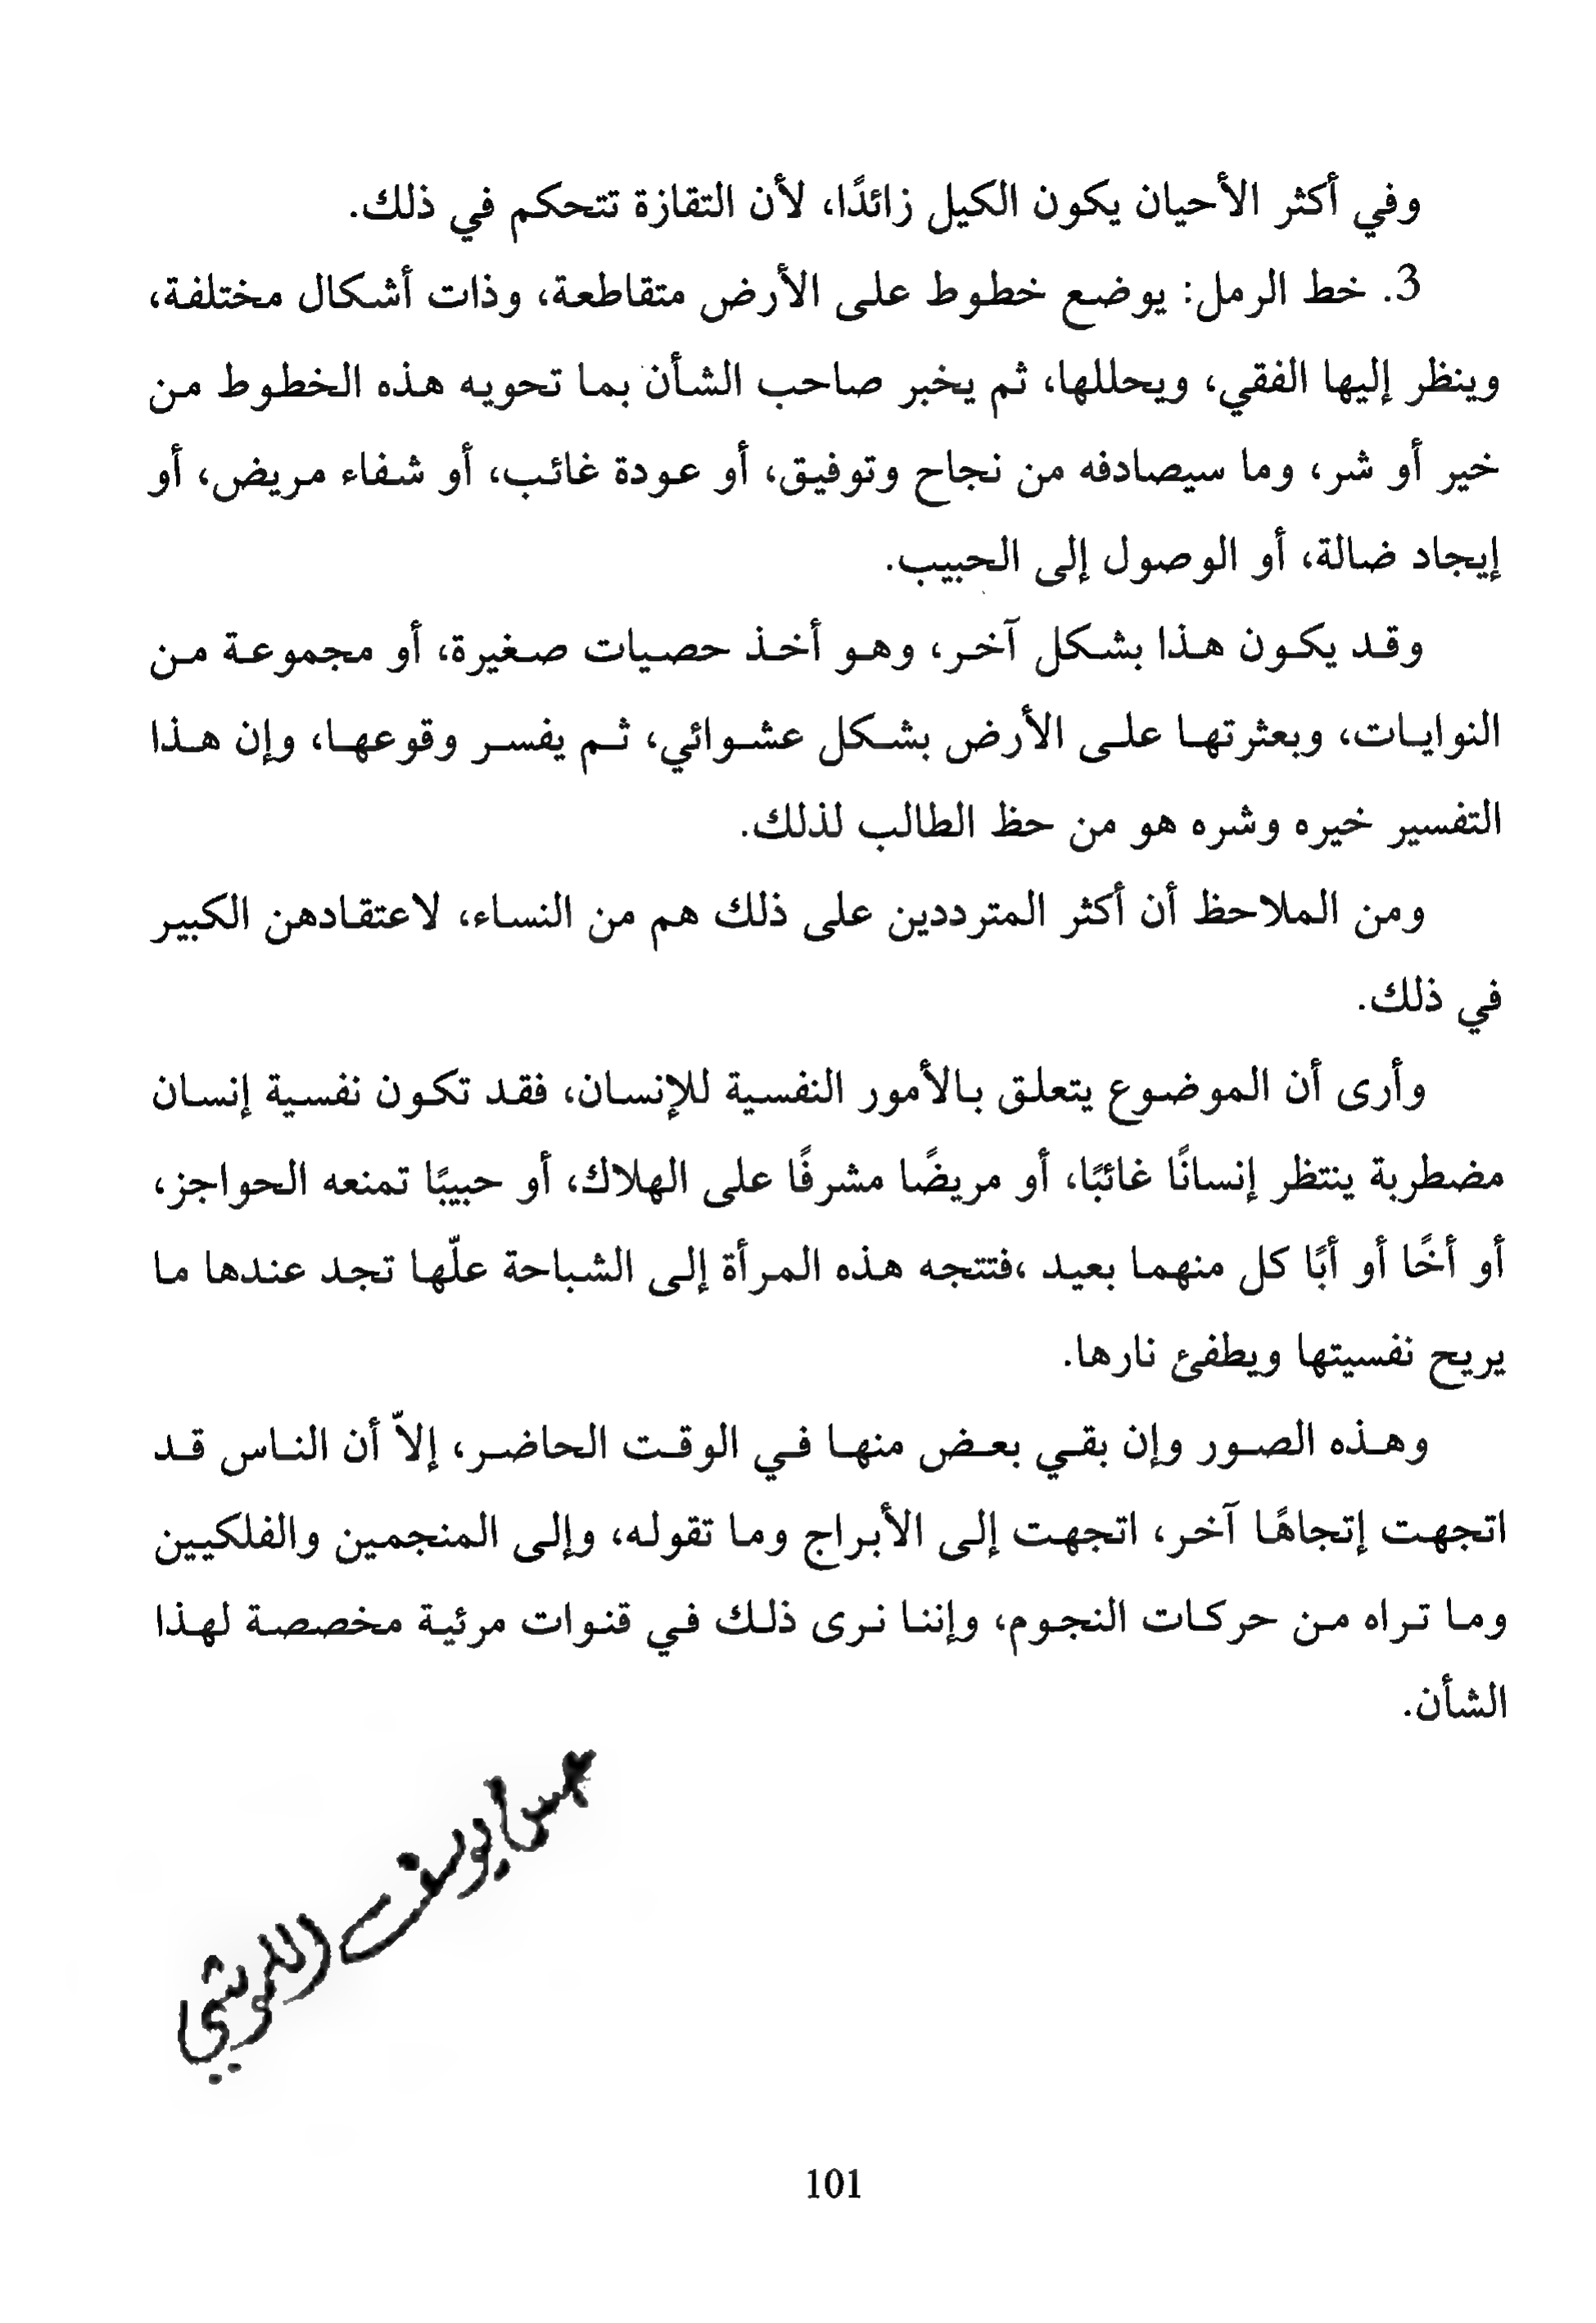 وفي أكثر الأحيان يكون الكيل زائدًا، لأن التقازة تتحكم في ذلك.
3. خط الرمل: يوضع خطوط على الأرض متقاطعة، وذات أشكال مختلفة،
وينظر إليها الفقي، ويحللها، ثم يخبر صاحب الشأن بما تحويه هذه الخطوط من
خير أو شر، وما سيصادفه من نجاح وتوفيق، أو عودة غائب، أو شفاء مريض، أو
إيجاد ضالة، أو الوصول إلى الحبيب.
وقد يكون هذا بشكل آخر، وهو أخذ حصيات صغيرة، أو مجموعة من
النوايات، وبعثرتها على الأرض بشكل عشوائي، ثم يفسر وقوعها، وإن هذا
التفسير خيره وشره هو من حظ الطالب لذلك.
ومن الملاحظ أن أكثر المترددين على ذلك هم من النساء، لاعتقادهن الكبير
في ذلك.
وأرى أن الموضوع يتعلق بالأمور النفسية للإنسان، فقد تكون نفسية إنسان
مضطربة ينتظر إنسانًا غائبًا، أو مريضًا مشرفًا على الهلاك، أو حبيبًا تمنعه الحواجز،
أو أخًا أو أبًا كل منهما بعيد ،فتتجه هذه المرأة إلى الشباحة علّها تجد عندها ما
يريح نفسيتها ويطفئ نارها.
وهذه الصور وإن بقي بعض منها في الوقت الحاضر، إلاّ أن الناس قد
اتجهت إتجاهًا آخر، اتجهت إلى الأبراج وما تقوله، وإلى المنجمين والفلكيين
وما تراه من حركات النجوم، وإننا نرى ذلك في قنوات مرئية مخصصة لهذا
الشأن.
يوسف
101